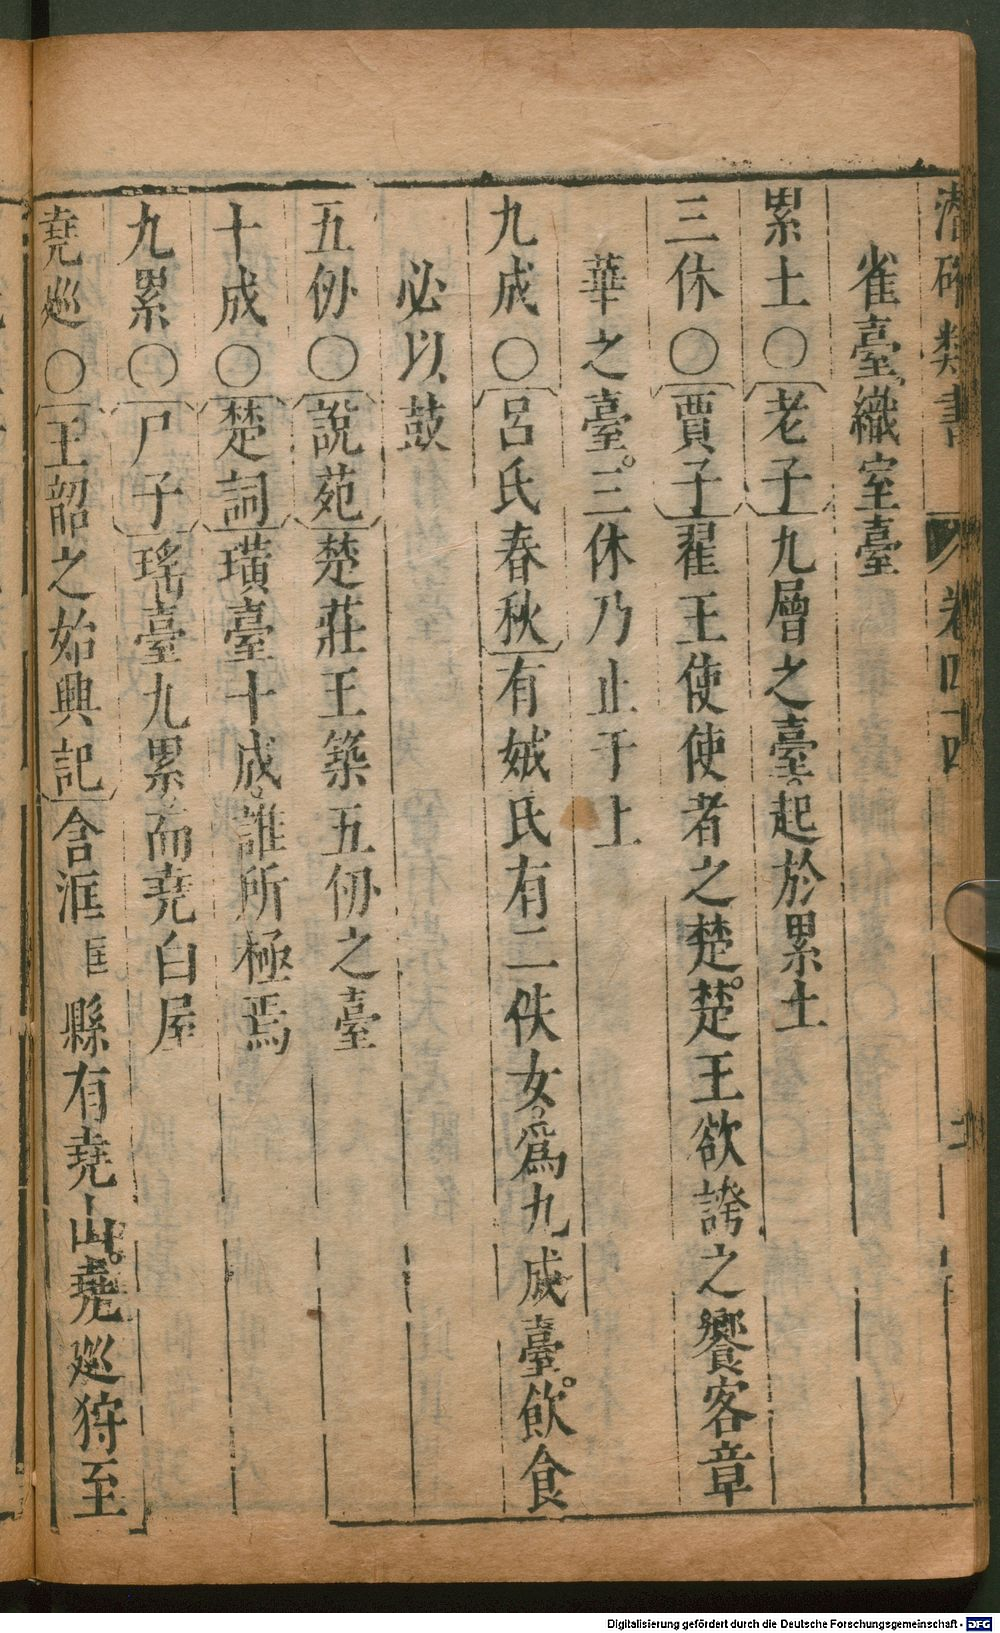 潛確類書 卷四十四
雀臺織室臺
累土○老子九層之臺起於累土
三休○賈子翟王使使者之楚楚王欲誇之饗客章
華之臺三休乃止于上
九成○呂氏春秋有娀氏有二佚女爲九成臺飲食
必以鼓
五仞○說苑楚莊王築五仞之臺
十成○楚詞璜臺十成誰所極焉
九累○尸子瑤臺九累而堯白屋
堯巡○王韶之始興記含洭匡縣有堯山堯巡狩至
Digitalisierung gefördert durch die Deutsche Forschungsgemeinschaft - DFG